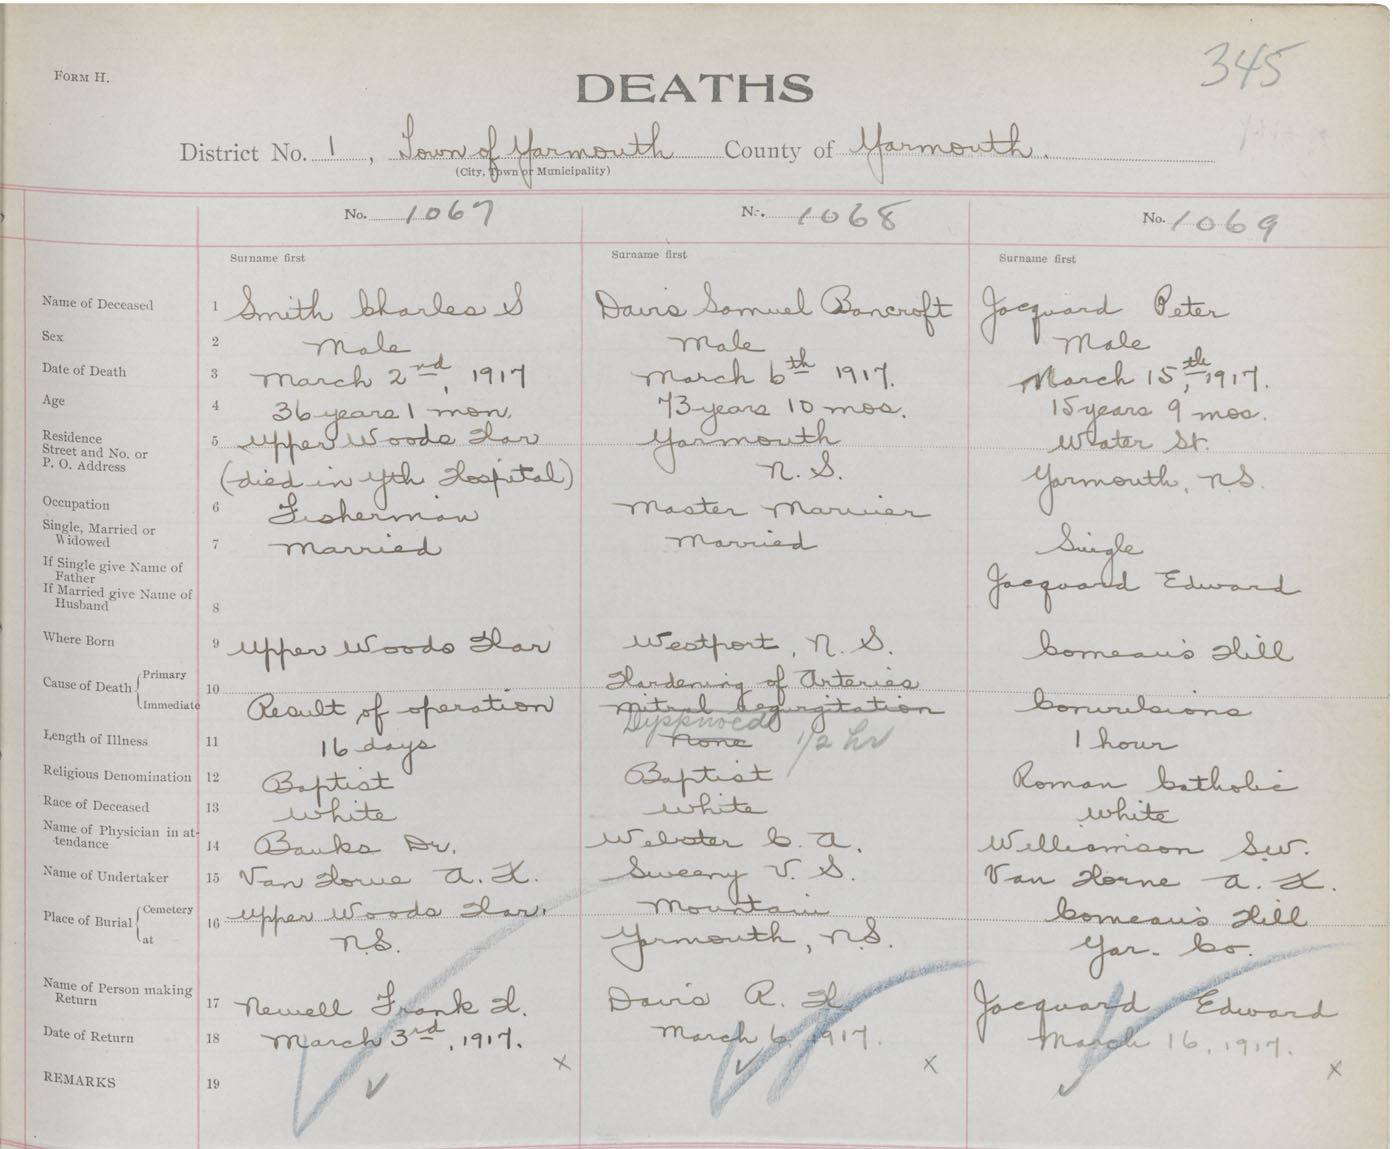 FORM H.
345
DEATHS
District No. 1, Town of Yarmouth County of Yarmouth.
(City, Town or Municipality)
No. 1067 No. 1068 No. 1069
Surname first Surname first Surname first
Name of Deceased 1 Smith Charles S Davis Samuel Bancroft Jacquard Peter
Sex 2 Male Male Male
Date of Death 3 March 2nd, 1917 March 6th 1917. March 15th, 1917.
Age 4 36 years 1 mon. 73 years 10 mos. 15 years 9 mos.
Residence 5 Upper Woods Har Yarmouth Water St.
Street and No. or
P. O. Address (died in Yth Hospital) N. S. Yarmouth, N.S.
Occupation 6 Fisherman Master Mariner
Single, Married or
Widowed 7 Married Married Single
If Single give Name of
Father Jacquard Edward
If Married give Name of
Husband 8
Where Born 9 Upper Woods Har Westport, N. S. Comeau's Hill
Cause of Death Primary 10 Hardening of Arteries
Immediate Result of operation Mitral regurgitation Convulsions
Dyspnoea
Length of Illness 11 16 days None 1/2 hr 1 hour
Religious Denomination 12 Baptist Baptist Roman Catholic
Race of Deceased 13 White White White
Name of Physician in at-
tendance 14 Banks Dr. Webster C. A. Williamson S.W.
Name of Undertaker 15 Van Horne A. K. Sweeny V. S. Van Horne A. K.
Place of Burial Cemetery 16 Upper Woods Har. Mountain Comeau's Hill
at N.S. Yarmouth, N.S. Yar. Co.
Name of Person making
Return 17 Newell Frank H. Davis R. H. Jacquard Edward
Date of Return 18 March 3rd, 1917. March 6, 1917. March 16, 1917.
x x x
REMARKS 19